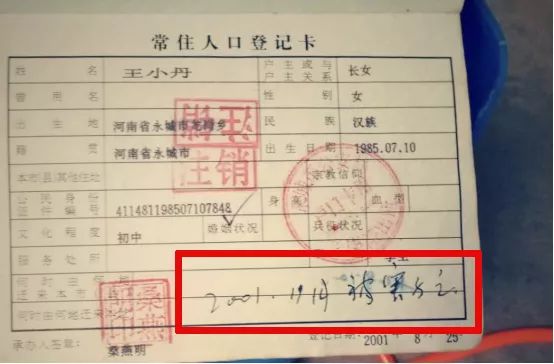 常住人口登记卡
姓名 王小丹 户主或与户主关系 长女
曾用名 性别 女
出生地 河南省永城市 民族 汉族
籍贯 河南省永城市 出生日期 1985.07.10
本市(县)其他住址 宗教信仰
公民身份证件编号 411481198507107848 身高 血型
文化程度 初中 婚姻状况 兵役状况
服务处所
何时由何地迁来本市(县)
何时由何地迁来本址
承办人签章: 桑燕明 登记日期: 2001 年 8 月 25
注销